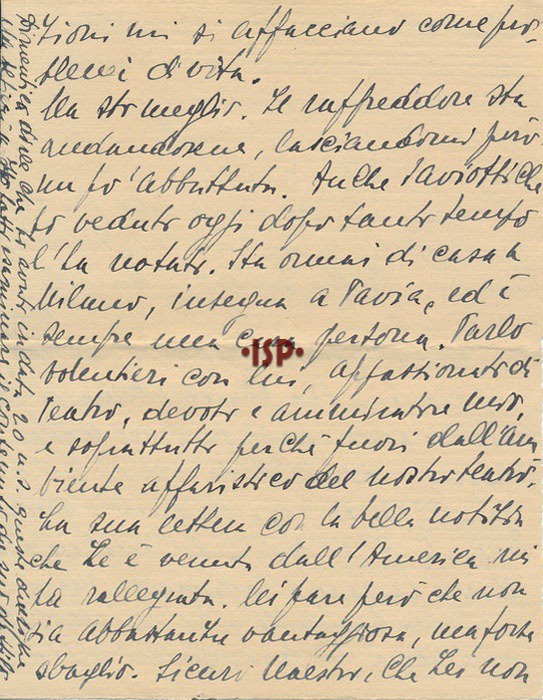 zioni mi si affacciano come pro-
blemi di vita.
Ma sto meglio. Il raffreddore sta
andandosene, lasciandomi però
un po' abbattuta. Anche Paviotti che
ho veduto oggi dopo tanto tempo
l'ha notato. Sta ormai di casa a
Milano, insegna a Pavia, ed è
sempre una cara persona. Parlo
volentieri con lui, appassionato di
Teatro, devoto e ammiratore mio,
e soprattutto perché fuori dall'am
biente affaristico del nostro teatro.
La sua lettera con la bella notizia
che Le è venuta dall'America mi
ha rallegrata. Mi pare però che non
sia abbastanza vantaggiosa, ma forse
sbaglio. Sicuri Maestro, che Lei non
•ISP•
Dimentico di dire che ho avuto in data 20 u.s.